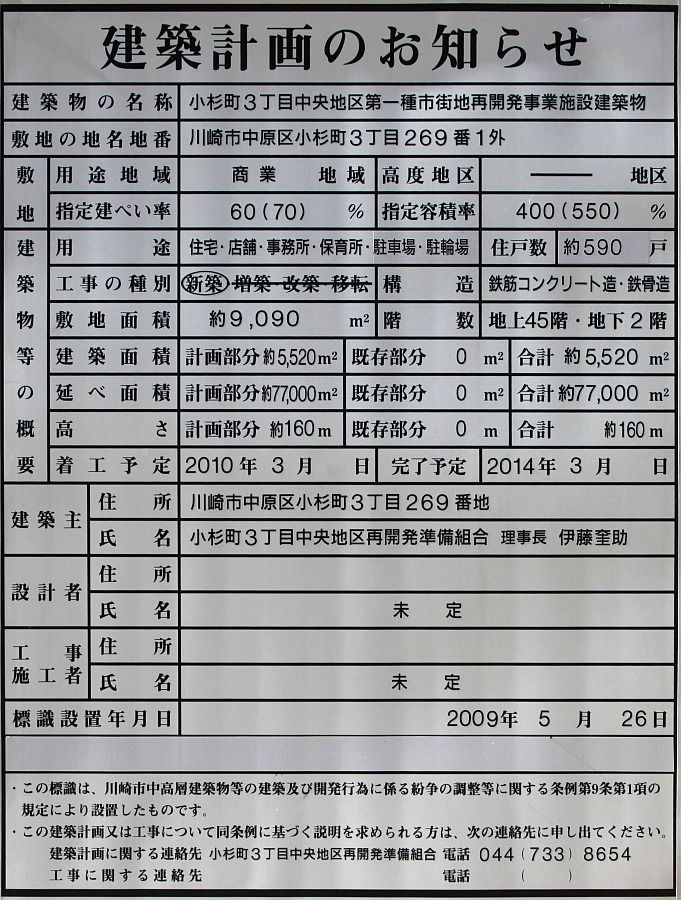 建築計画のお知らせ
建築物の名称 小杉町3丁目中央地区第一種市街地再開発事業施設建築物
敷地の地名地番 川崎市中原区小杉町3丁目269番1外
敷地 用途地域 商業 地域 高度地区 ── 地区
指定建ぺい率 60(70) % 指定容積率 400(550) %
建築物等の概要 用途 住宅・店舗・事務所・保育所・駐車場・駐輪場 住戸数 約590 戸
工事の種別 新築・増築・改築・移転 構造 鉄筋コンクリート造・鉄骨造
敷地面積 約9,090 m² 階数 地上45階・地下2階
建築面積 計画部分 約5,520m² 既存部分 0 m² 合計 約5,520 m²
延べ面積 計画部分 約77,000m² 既存部分 0 m² 合計 約77,000 m²
高さ 計画部分 約160m 既存部分 0 m 合計 約160m
着工予定 2010年 3月 日 完了予定 2014年 3月 日
建築主 住所 川崎市中原区小杉町3丁目269番地
氏名 小杉町3丁目中央地区再開発準備組合 理事長 伊藤奎助
設計者 住所
氏名 未定
工事施工者 住所
氏名 未定
標識設置年月日 2009年 5月 26日
・この標識は、川崎市中高層建築物等の建築及び開発行為に係る紛争の調整等に関する条例第9条第1項の
規定により設置したものです。
・この建築計画又は工事について同条例に基づく説明を求められる方は、次の連絡先に申し出てください。
建築計画に関する連絡先 小杉町3丁目中央地区再開発準備組合 電話 044(733)8654
工事に関する連絡先 電話 ( )